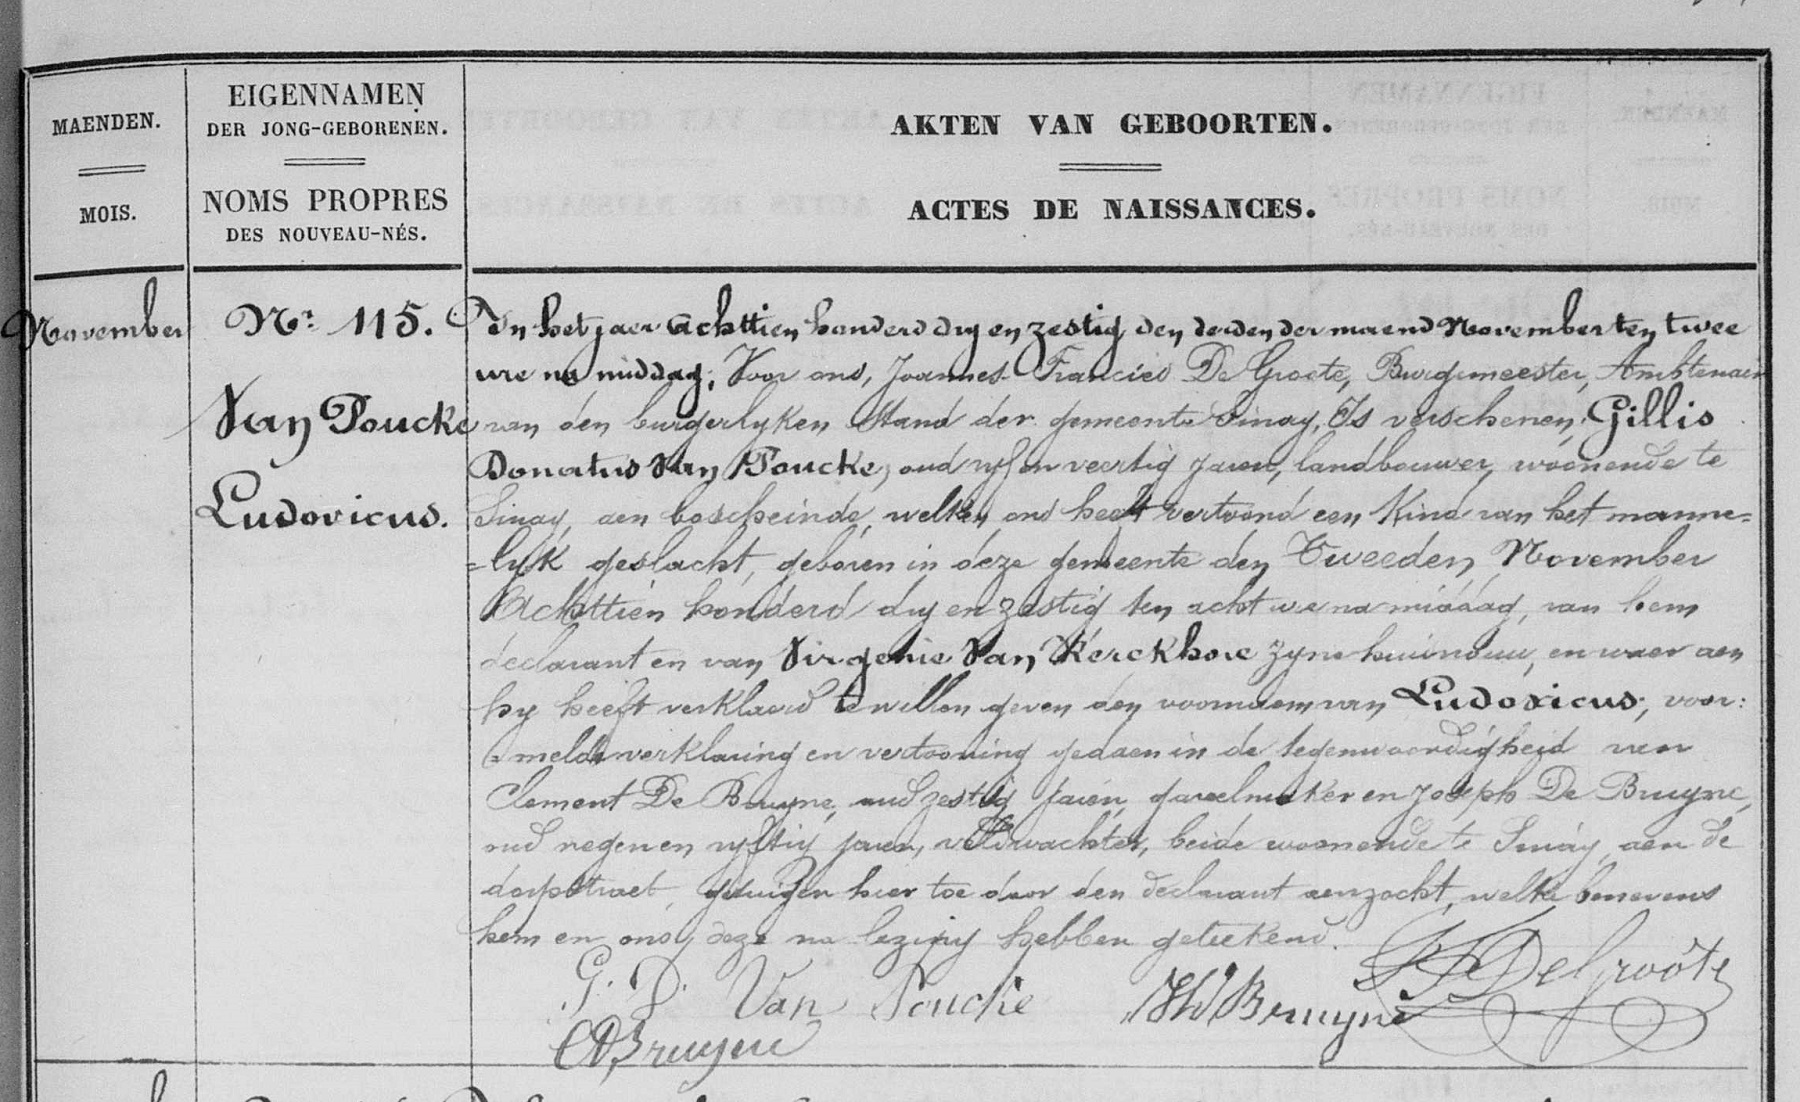 MAENDEN.
MOIS.
EIGENNAMEN
DER JONG-GEBORENEN.
NOMS PROPRES
DES NOUVEAU-NÉS.
AKTEN VAN GEBOORTEN.
ACTES DE NAISSANCES.
November
Nr. 115.
Van Poucke
Ludovicus.
In het jaer Achttien honderd dry en zestig den derden der maend November ten twee
ure na middag, Voor ons, Joannes Francies De Groote, Burgemeester, Ambtenaer
van den burgerlyken Stand der gemeente Sinay, Is verschenen, Gillis
Donatus Van Poucke, oud vyf en veertig jaren, landbouwer, woonende te
Sinay, aen boscheinde, welken ons heeft vertoond een Kind van het manne=
=lyk geslacht, geboren in deze gemeente den Tweeden November
Achttien honderd dry en zestig ten acht ure na middag, van hem
declarant en van Virgenie Van Kerckhove zyne huisvrouw, en waer aen
hy heeft verklaerd te willen geven den voornaem van Ludovicus; voor:
melde verklaring en vertooning gedaen in de tegenwoordigheid van
Clement De Bruyne, oud zestig jaren, gareelmaker en Joseph De Bruyne,
oud negen en vyftig jaren, veldwachter, beide woonende te Sinay, aen de
dorpstraet, getuigen hier toe door den declarant aenzocht, welke benevens
hem en ons, deze na lezing hebben geteekend.
G. D. Van Poucke
DeGroote
Bruyne
CDBruyne